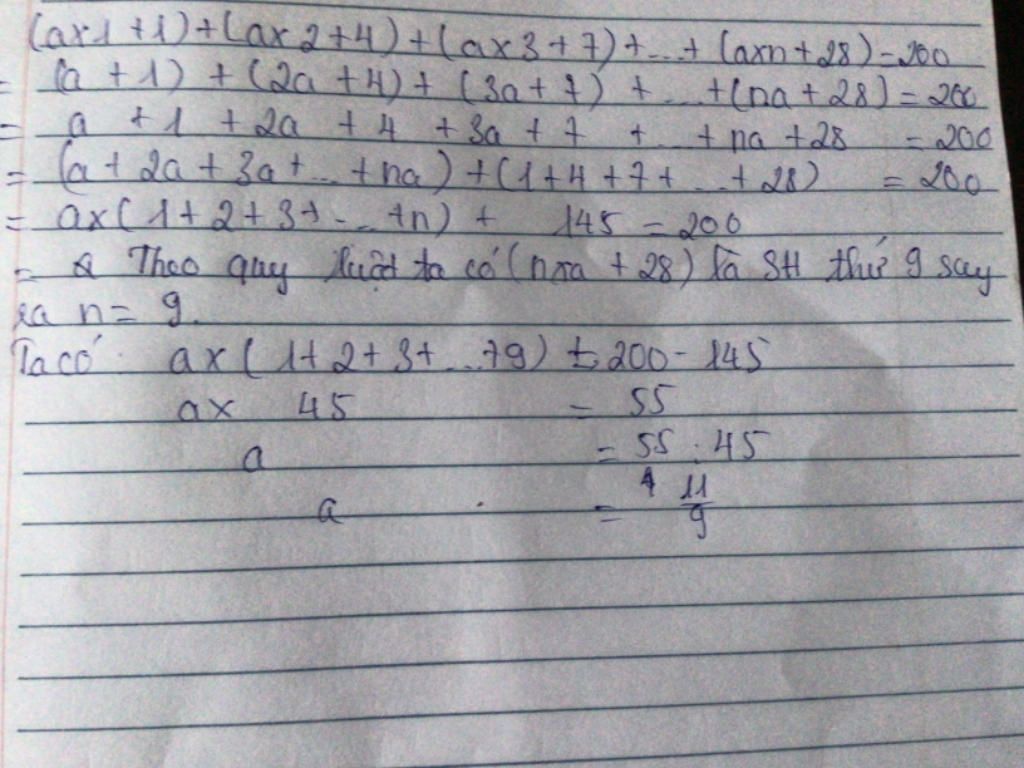 (ax1+1)+(ax2+4)+(ax3+7)+...+(axn+28)=200
= (a+1)+(2a+4)+(3a+7)+...+(na+28)=200
= a+1+2a+4+3a+7+...+na+28=200
= (a+2a+3a+...+na)+(1+4+7+...+28)=200
= ax(1+2+3+...+n)+ 145=200
= Theo quy luật ta có (nxa+28) là SH thứ 9 suy
ra n= 9.
Ta có: ax(1+2+3+...+9) = 200-145
ax 45 = 55
a = 55:45
a = 11/9